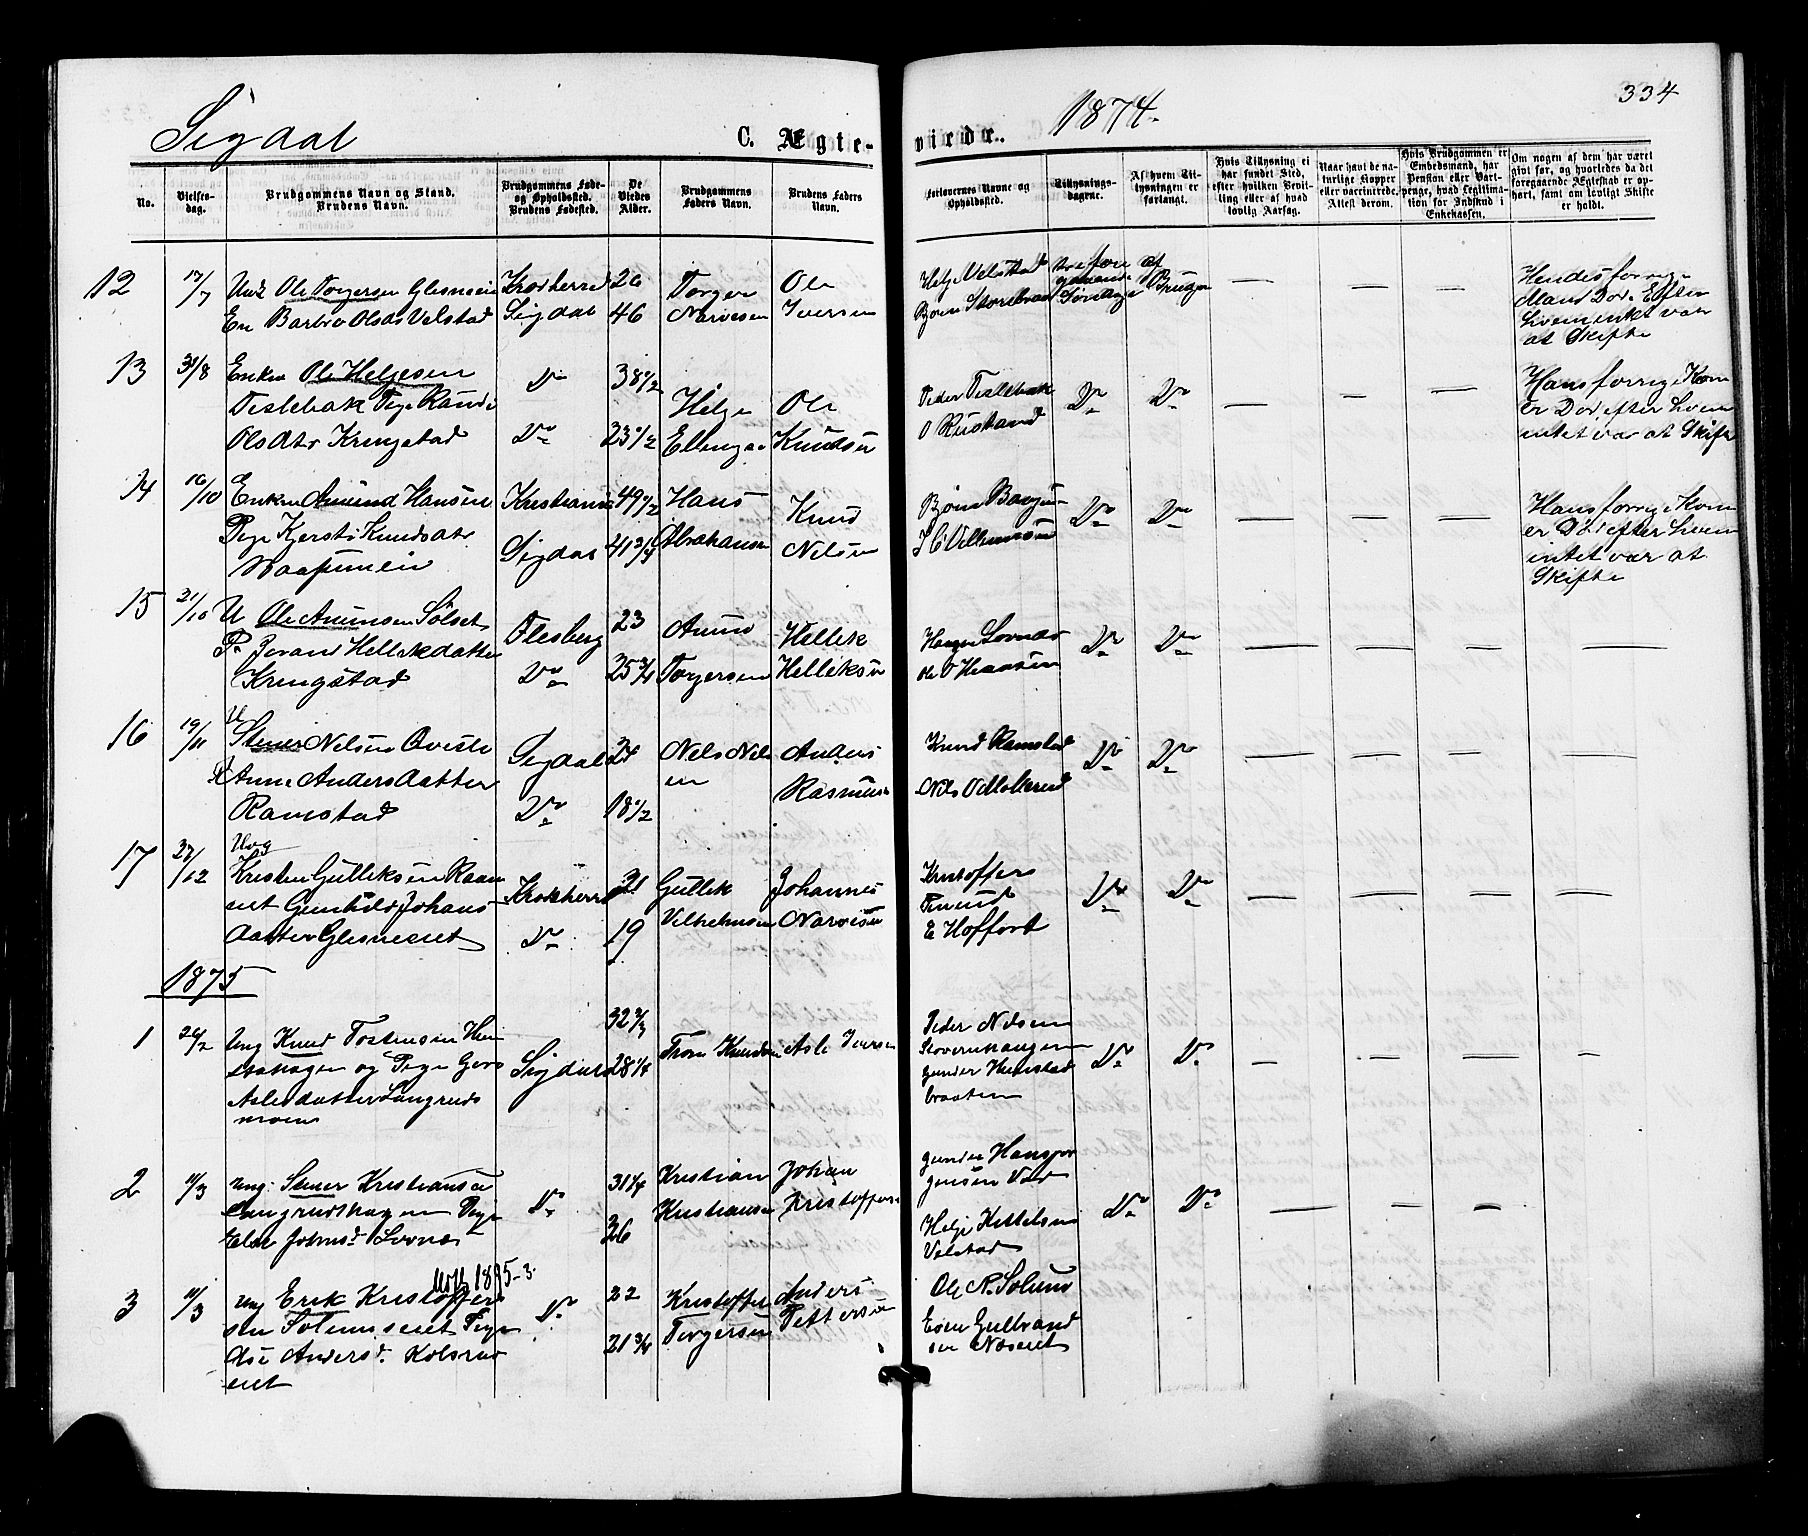 334
Sigdal C. Ægte- viede. 1874.
No.
Vielses-
dag.
Brudgommens Navn og Stand.
Brudens Navn.
Brudgommens Føde-
og Opholdssted.
Brudens Fødested.
De
Viedes
Alder.
Brudgommens
Faders Navn.
Brudens Faders
Navn.
Forlovernes Navne og
Opholdssted.
Tillysnings-
dagene.
Af hvem Til-
lysningen er
forlangt.
Hvis Tillysning ei
har fundet Sted,
efter hvilken Bevil-
ling eller af hvad
lovlig Aarsag.
Naar havt de na-
turlige Kopper
eller vaccinerede.
Attest derom.
Hvis Brudgommen er
Embedsmand, har
Pension eller Vart-
penge, hvad Legitima-
tion for Indskud i
Enkekassen.
Om nogen af dem har været
givt før, og hvorledes da det
foregaaende Ægteskab er op-
hørt, samt om lovligt Skifte
er holdt.
12
17/7
Ole Torgersen Glesne
En Barbro Olsdt Velstad
Krødherred
Sigdal
26
46
Torger
Narvesen
Ole
Iversen
Helge Velstad
Bjørn Storebraat
tre fore
gaaende
Søndage
af
Brudgom
— — —
Hendes forrige
Mand Død. Efter
Loven intet var
at Skifte
13
31/8
Enkem Ole Helgesen
Teslebak Pige Randi
Olsdtr Kringstad
Do
Do
38 1/2
23 1/2
Helge
Ellingsen
Ole
Knudsen
Peder Teslebak
O Rustand
Do
Do
— — —
Hans forrige Kone
er Død, efter Loven
intet var at Skifte
14
16/10
Enkem Amund Hansen
Pige Kjersti Knudsdtr
Kristiania
Sigdal
49 1/2
41 3/4
Hans
Abrahamsen
Knud
Nilsen
Bjørn
Do
Do
— — —
Hans forrige Kone
er Død efter Loven
intet var at
Skifte
15
21/10
U Ole Amunsen Sølset
P Jøran Hellekdatter
Kringstad
Flesberg
Do
23
25 3/4
Amund
Torgersen
Hellek
Helleksen
Ole O Hansen
Do
Do
— — — —
16
19/11
U
Stener Nilsen Qvisle
P Anne Andersdatter
Ramstad
Sigdal
Do
24
18 1/2
Nels Nils
en
Anders
Rasmusen
Knud Ramstad
Nils
Do
Do
— — — —
17
27/12
Ung
Kristen Gulleksen Raan
Gunhild Johans
datter Glesneeiet
Krødherred
Do
21
19
Gullek
Vilhelmsen
Johannes
Narvesen
Kristoffer
E Hoffart
Do
Do
— — — —
1875
1
26/2
Ung Knud Tostensen
og Pige Guro
Asledatter Langruds
moen
Sigdal
32 2/3
28 1/4
Knudsen
Asle Iversen
Peder Nilsen
Stovernhaugen
Gunder
braaten
Do
Do
— — — —
2
11/3
Ung. Stener Kristiansen
Langrudhagen Pige
Eline Johnsd. Lovnæs
Do
31 1/4
26
Kristian
Kristiansen
Johan
Kristoffers
Gunder Hans Jør
gensen
Helge Kittelsen
Velstad
Do
Do
— — —
3
11/3
1895-3.
Ung Erik Kristoffer
sen Solumseiet Pige
Åse Andersd. Kolsrud
eiet
Do
22
21 3/4
Kristoffer
Torgersen
Anders
Pettersen
Ole N. Solum
Even Gulbrand
sen Næseiet